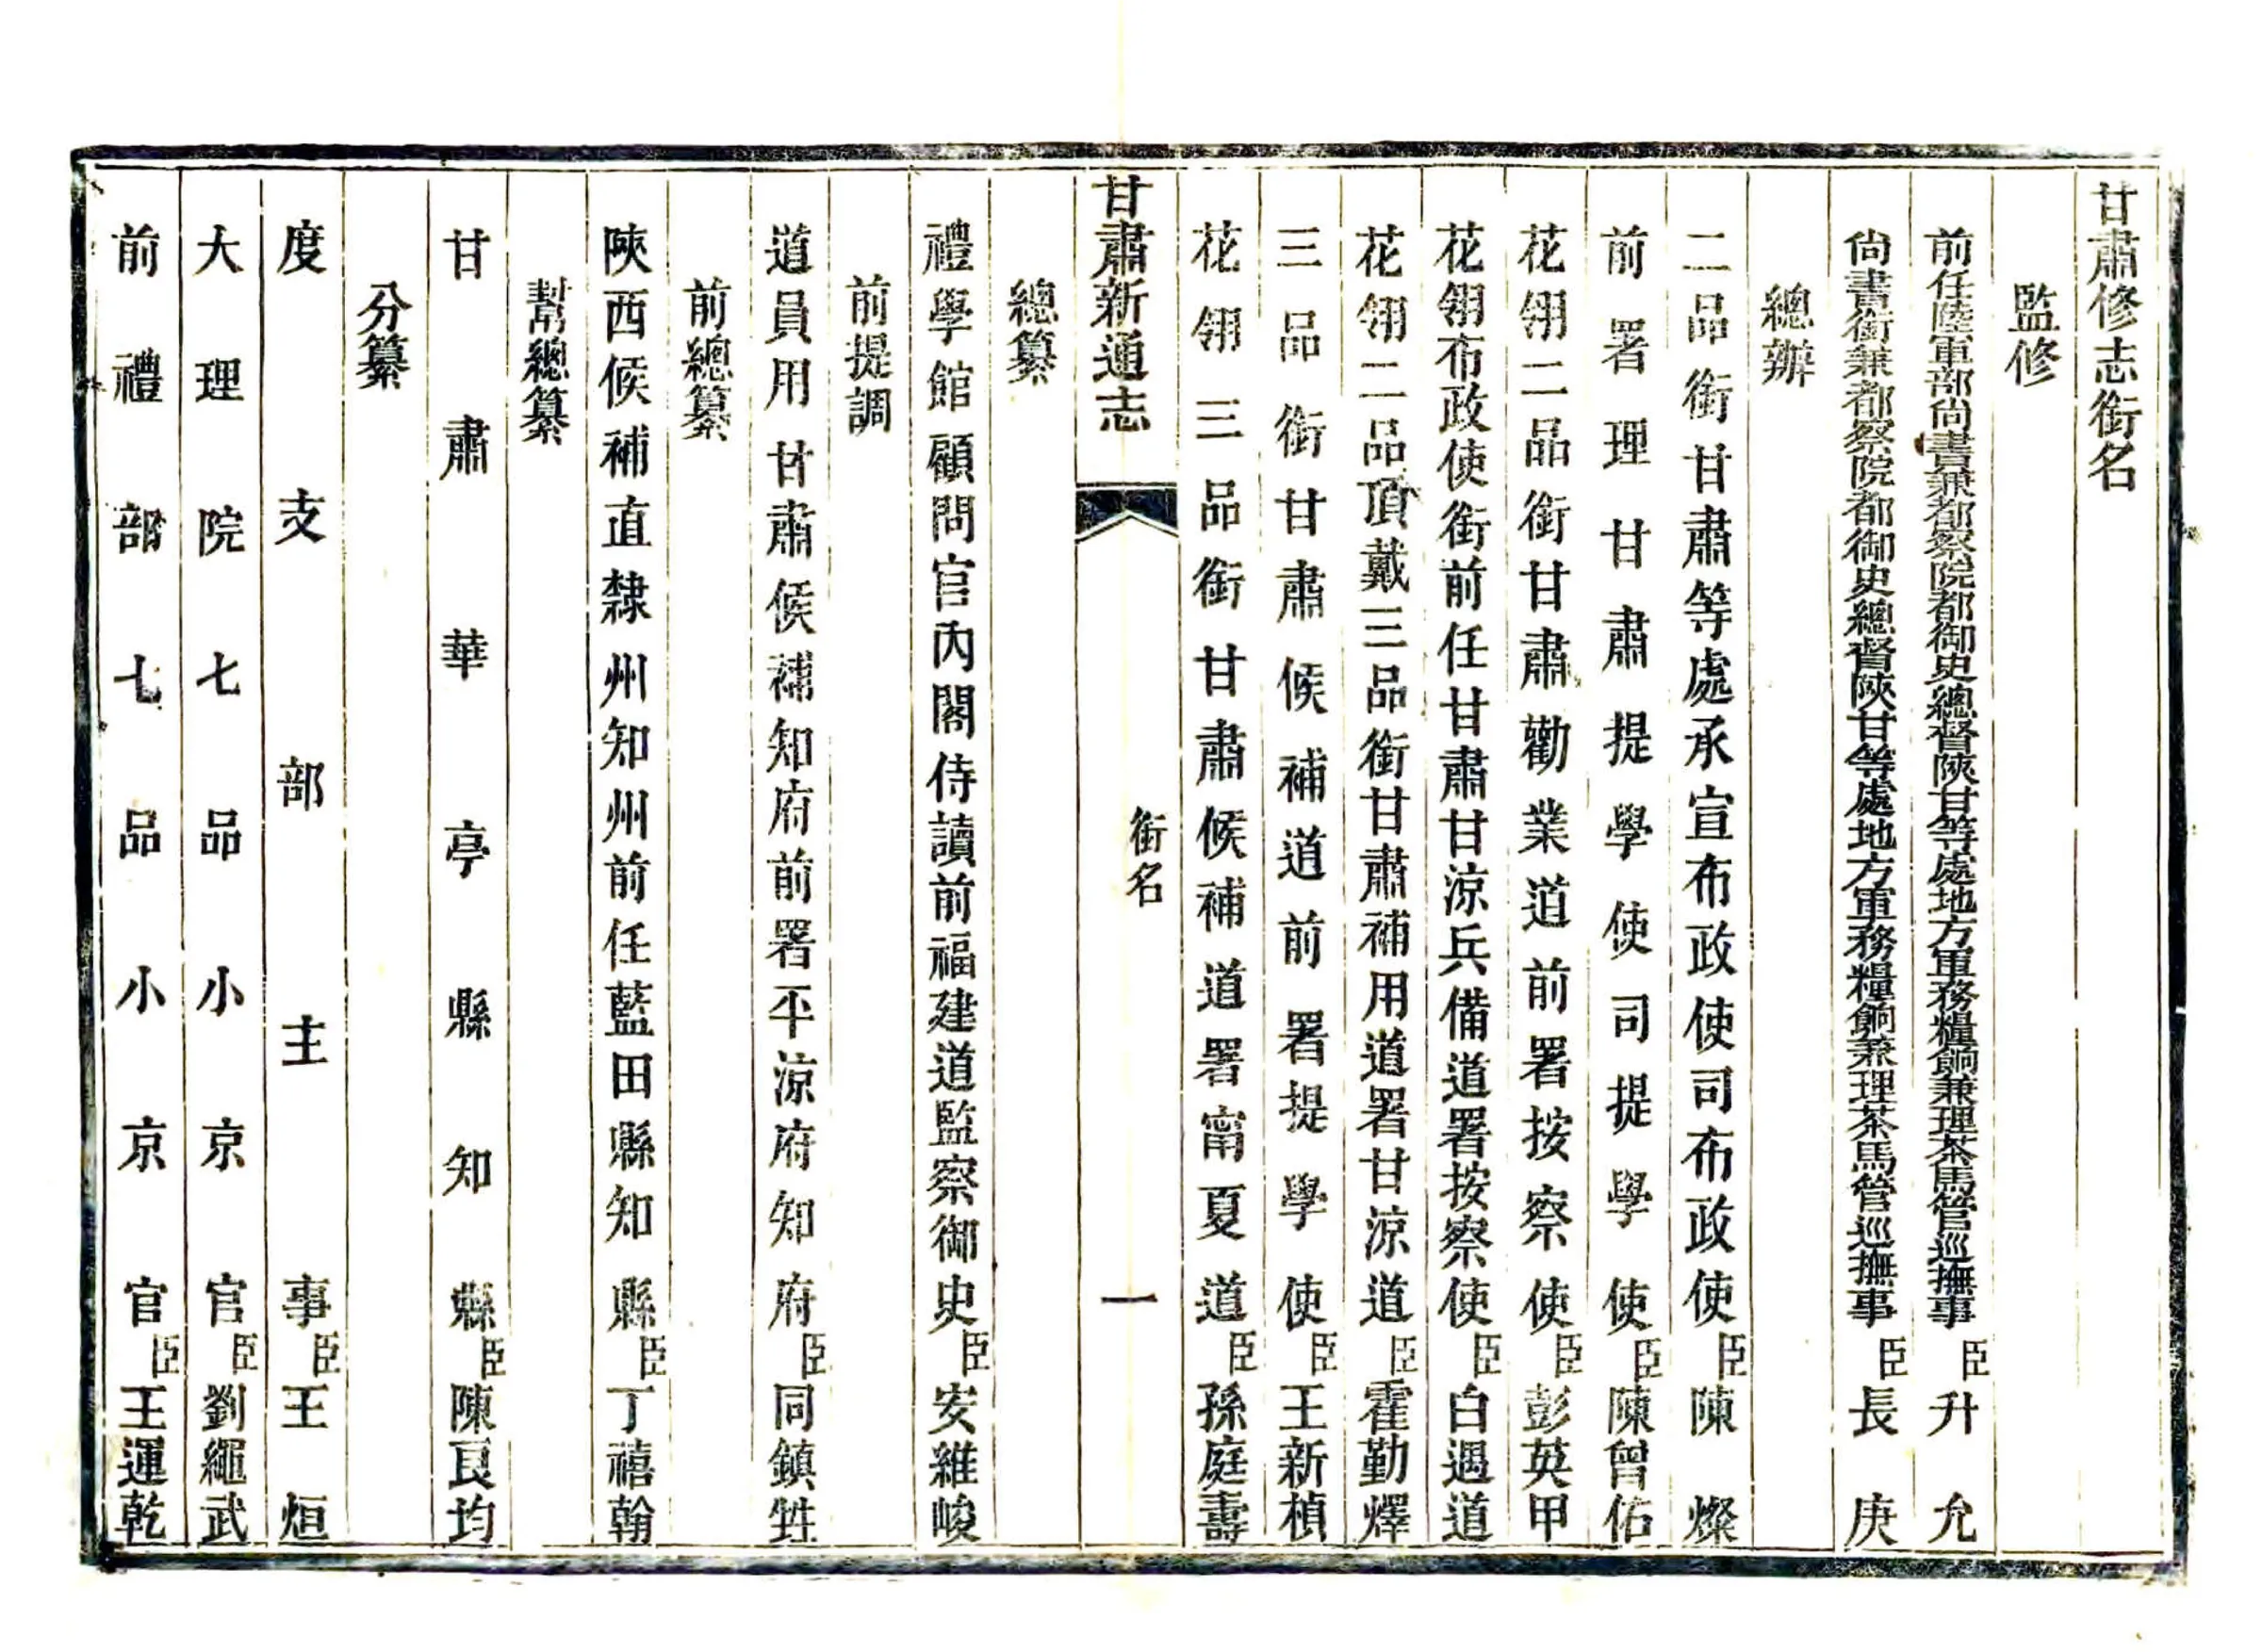 甘肅修志銜名
監修
前任陸軍部尙書兼都察院都御史總督陝甘等處地方軍務糧餉兼理茶馬管巡撫事臣升允
尙書銜兼都察院都御史總督陝甘等處地方軍務糧餉兼理茶馬管巡撫事臣長庚
總辦
二品銜甘肅等處承宣布政使司布政使臣陳燦
前署理甘肅提學使司提學使臣陳曾佑
花翎二品銜甘肅勸業道前署按察使臣彭英甲
花翎布政使銜前任甘肅甘涼兵備道署按察使臣白遇道
花翎二品頂戴三品銜甘肅補用道署甘涼道臣霍勤燡
三品銜甘肅候補道前署提學使臣王新楨
花翎三品銜甘肅候補道署甯夏道臣孫庭壽
甘肅新通志
銜名
一
總纂
禮學館顧問官內閣侍讀前福建道監察御史臣安維峻
前提調
道員用甘肅候補知府前署平涼府知府臣同鎭甡
前總纂
陝西候補直隸州知州前任藍田縣知縣臣丁禧翰
幫總纂
甘肅華亭縣知縣臣陳良均
分纂
度支部主事臣王烜
大理院七品小京官臣劉繩武
前禮部七品小京官臣王運乾